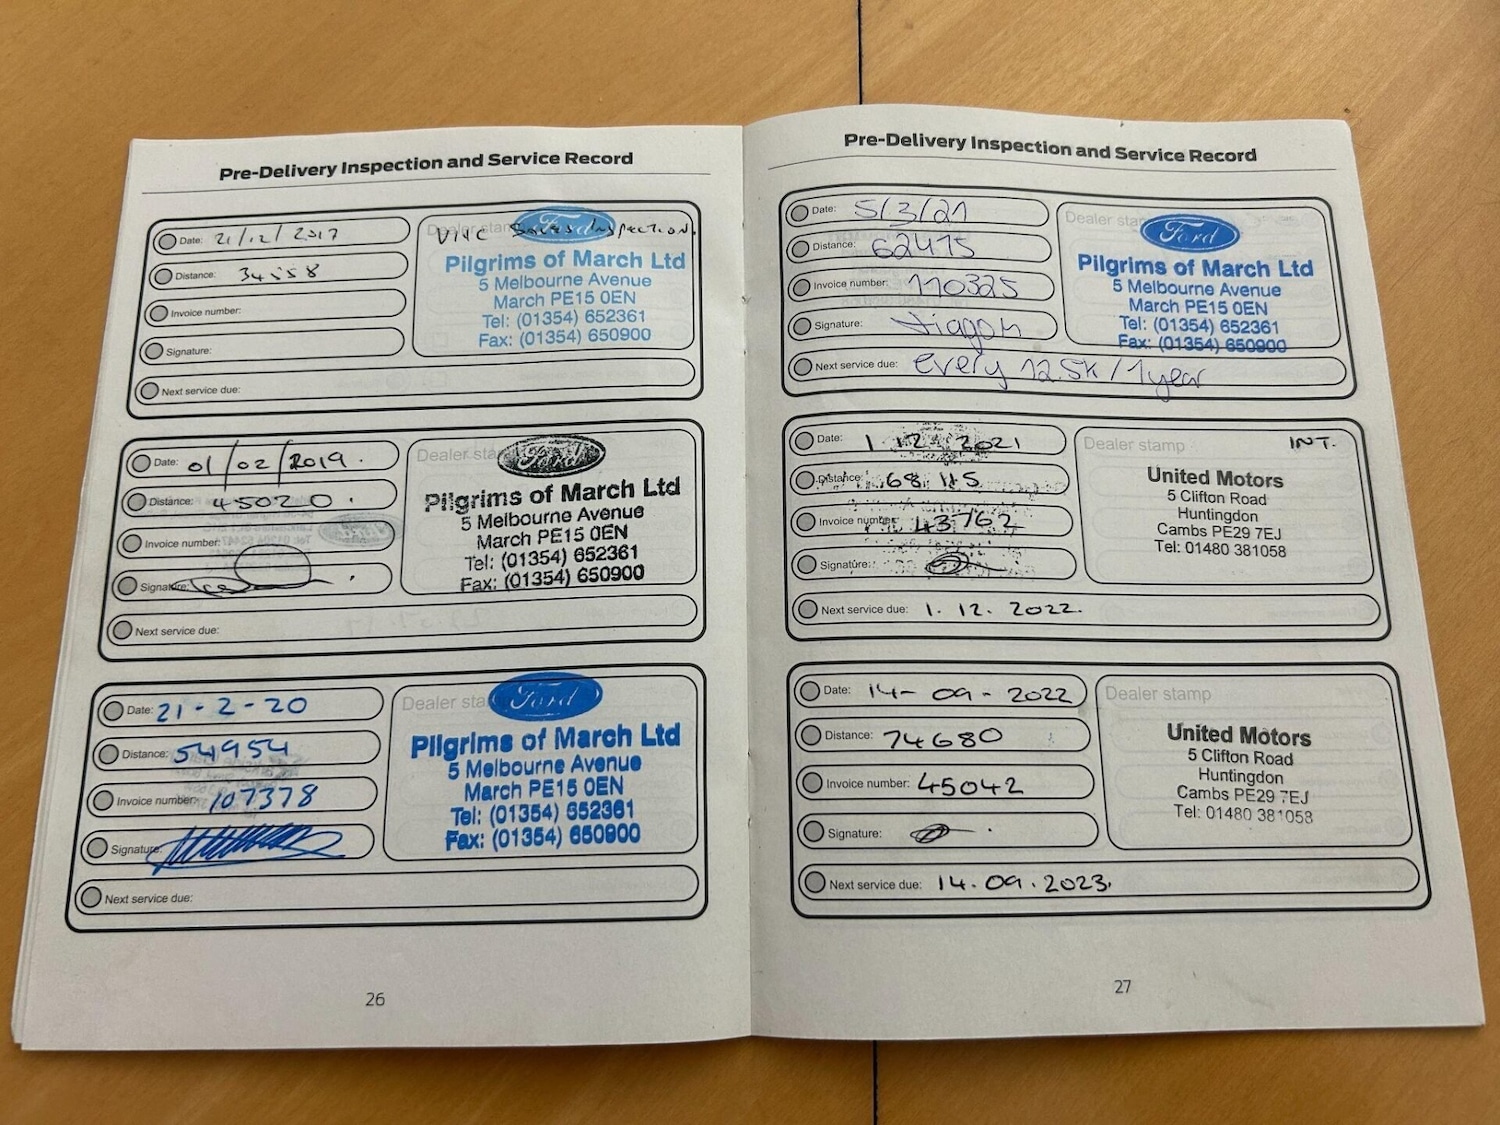 Pre-Delivery Inspection and Service Record
Date: 21/12/2017
Distance: 34558
Invoice number:
Signature:
Next service due:
Dealer stamp
Ford
VHC Sales Inspection.
Pilgrims of March Ltd
5 Melbourne Avenue
March PE15 0EN
Tel: (01354) 652361
Fax: (01354) 650900
Date: 01/02/2019.
Distance: 45020.
Invoice number:
Signature:
Next service due:
Dealer stamp
Ford
Pilgrims of March Ltd
5 Melbourne Avenue
March PE15 0EN
Tel: (01354) 652361
Fax: (01354) 650900
Date: 21-2-20
Distance: 54954
Invoice number: 107378
Signature:
Next service due:
Dealer stamp
Ford
Pilgrims of March Ltd
5 Melbourne Avenue
March PE15 0EN
Tel: (01354) 652361
Fax: (01354) 650900
26
Pre-Delivery Inspection and Service Record
Date: 5/3/21
Distance: 62475
Invoice number: 110325
Signature:
Next service due: every 12.5k/1year
Dealer stamp
Ford
Pilgrims of March Ltd
5 Melbourne Avenue
March PE15 0EN
Tel: (01354) 652361
Fax: (01354) 650900
Date: 1.12.2021
Distance: 68115
Invoice number: 43762
Signature:
Next service due: 1.12.2022.
Dealer stamp
INT.
United Motors
5 Clifton Road
Huntingdon
Cambs PE29 7EJ
Tel: 01480 381058
Date: 14-09-2022
Distance: 74680
Invoice number: 45042
Signature:
Next service due: 14.09.2023.
Dealer stamp
United Motors
5 Clifton Road
Huntingdon
Cambs PE29 7EJ
Tel: 01480 381058
27